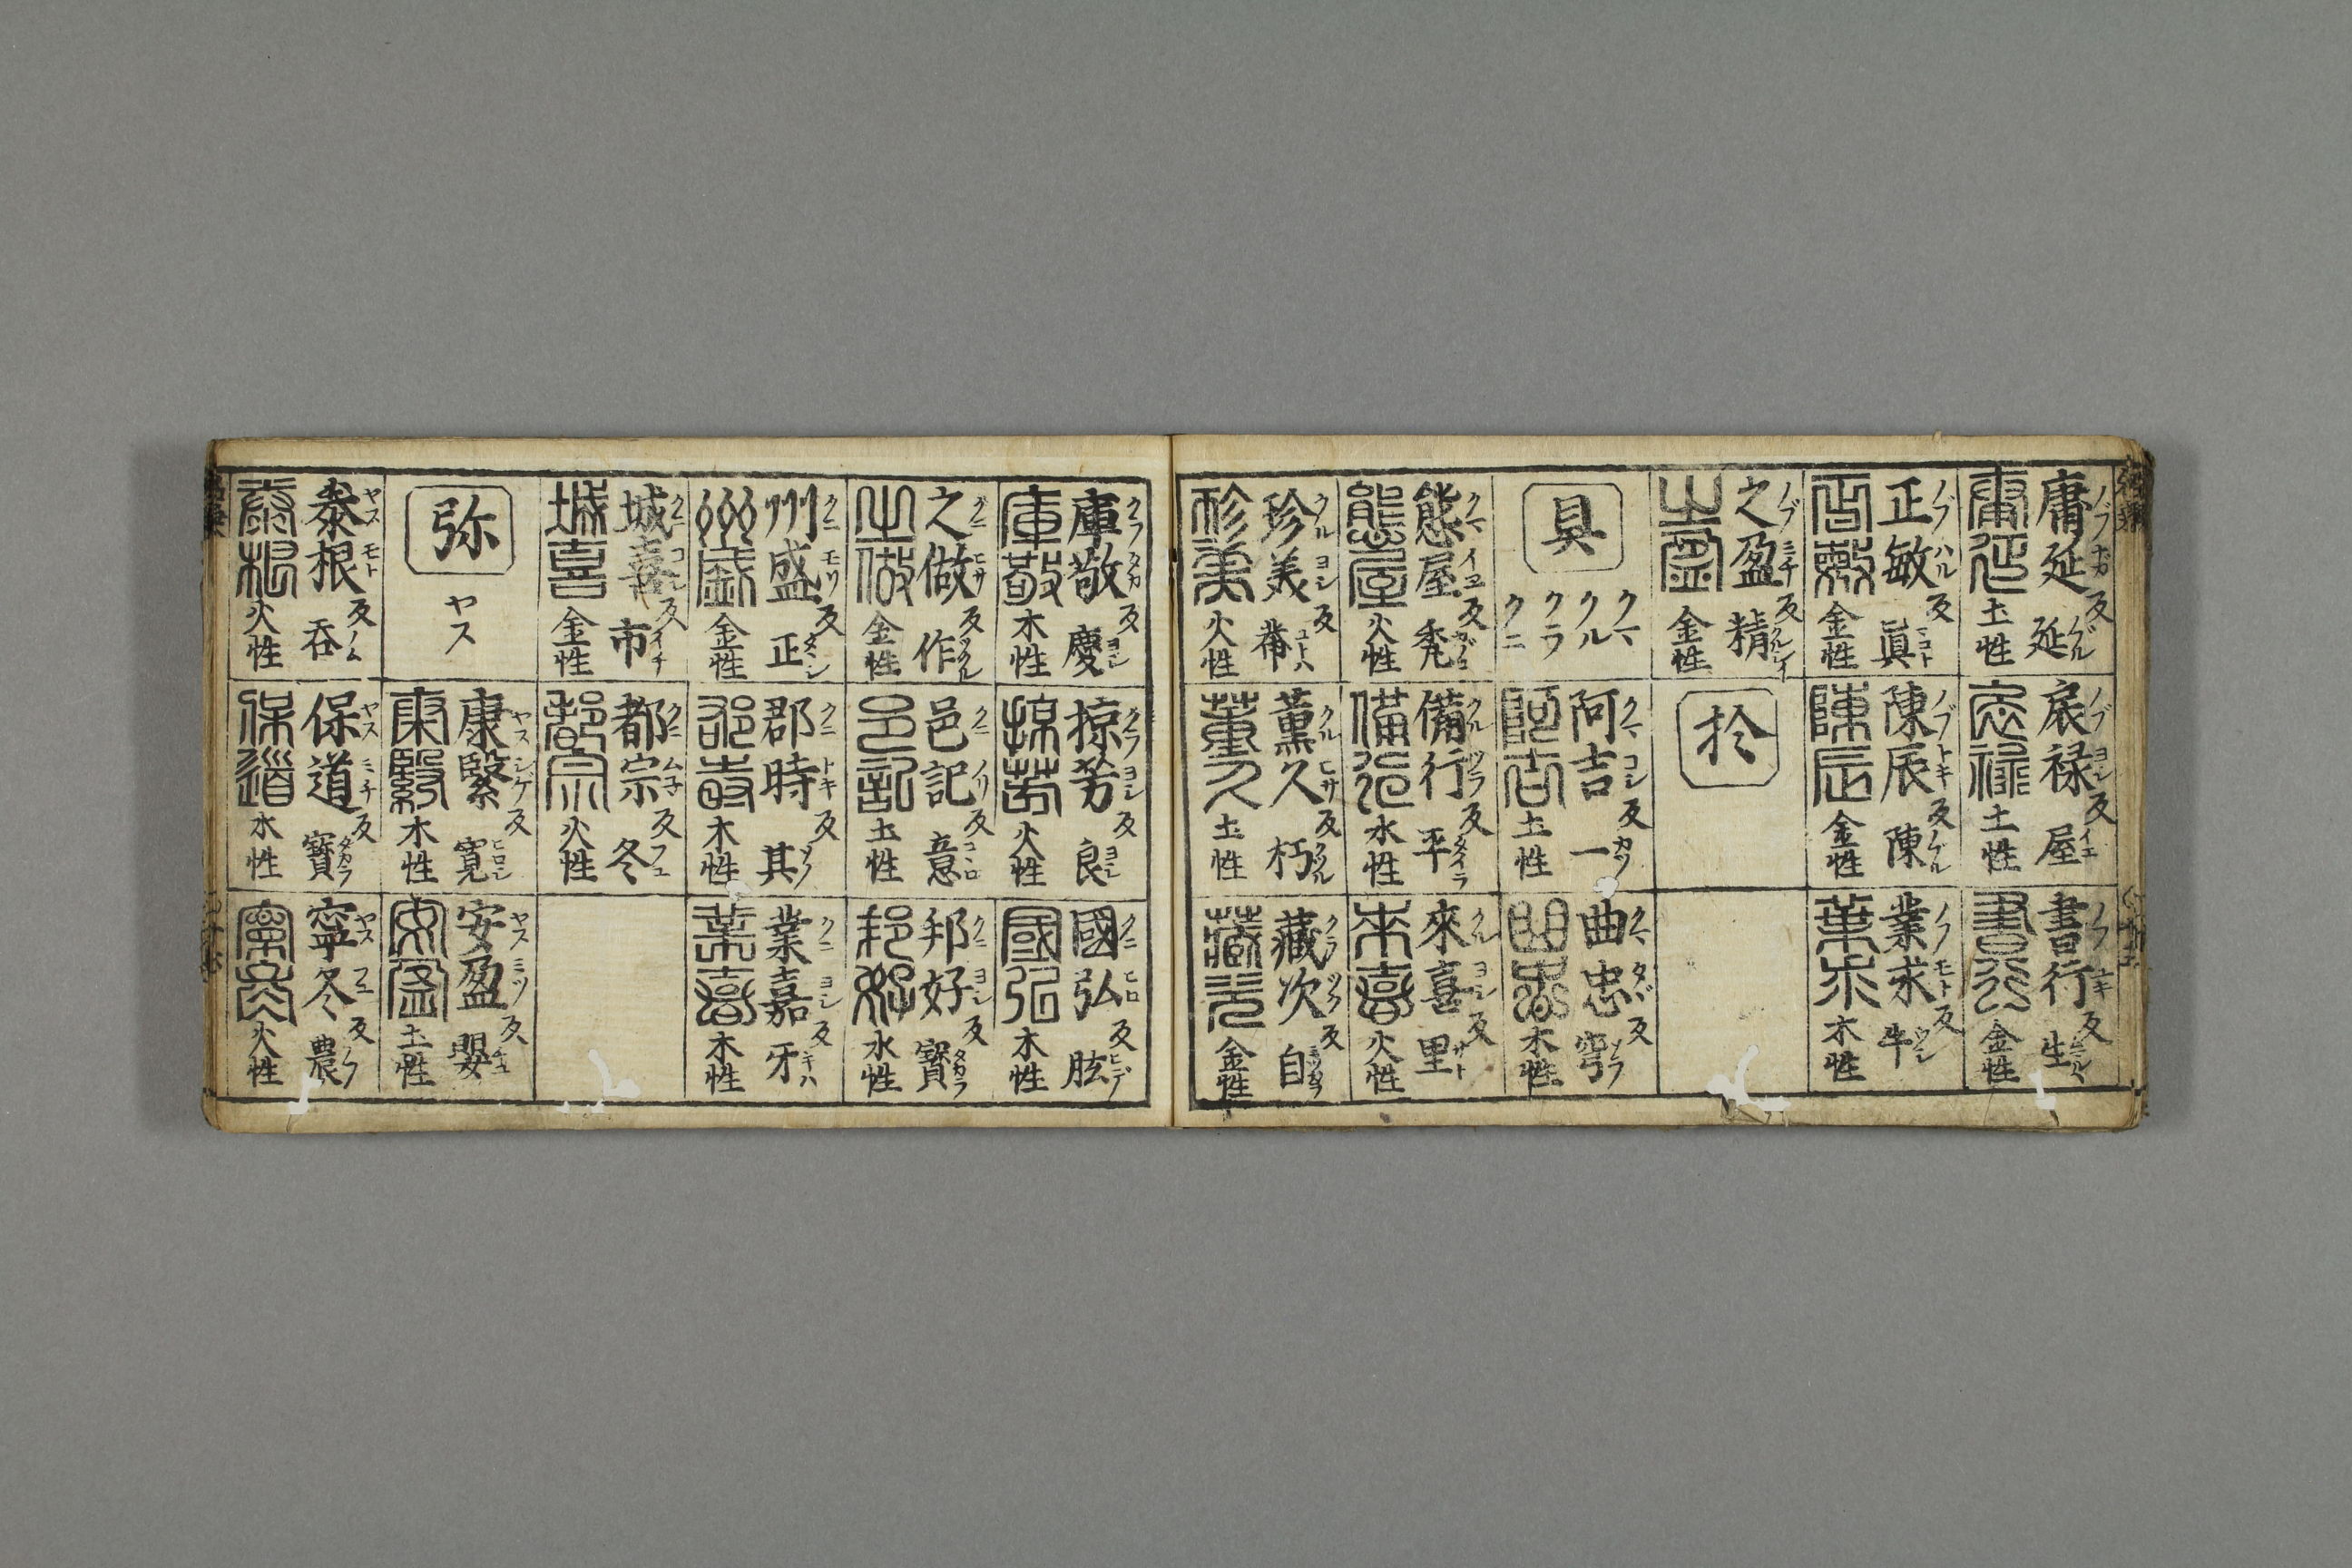 庸延 ノブナガ 反 延 ノブル
土性
扆禄 ノブヨシ 反 屋 イエ
土性
書行 ノブユキ 反 生
金性
正敏 ノブハル 反 眞 マコト
金性
陳辰 ノブトキ 反 陳 ノブル
金性
業求 ノブモト 反 牛 ウシ
木性
之盈 ノブミチ 反 精 クハシイ
金性
於
具
クマ
クル
クラ
クニ
阿吉 クマヨシ 反 一 カツ
土性
曲忠 クマタヾ 反 穹 ソラ
木性
熊屋 クマイヱ 反 禿 カブロ
火性
備行 クルツラ 反 平 タイラ
水性
來喜 クルヨシ 反 里 サト
火性
珍美 クルヨシ 反
火性
薫久 クルヒサ 反 朽 クツル
土性
藏次 クラツグ 反 自
金性
庫敬 クラタカ 反 慶 ヨシ
木性
掠芳 クラヨシ 反 良 ヨシ
火性
國弘 クニヒロ 反 肱 ヒヂ
木性
之做 クニヒサ 反 作 ツクル
金性
邑記 クニノリ 反 意 コヽロ
土性
邦好 クニヨシ 反 寳 タカラ
水性
州盛 クニモリ 反 正 タヾシ
金性
郡時 クニトキ 反 其 ソノ
木性
業嘉 クニヨシ 反 牙 キハ
木性
城喜 クニヨシ 反 市 イチ
金性
都宗 クニム子 反 冬 フユ
火性
弥
ヤス
康緊 ヤスシゲ 反 寛 ヒロシ
木性
安盈 ヤスミツ 反 嬰
土性
泰根 ヤスモト 反 呑 ノム
火性
保道 ヤスミチ 反 寳 タカラ
水性
寧冬 ヤスフユ 反 農
火性